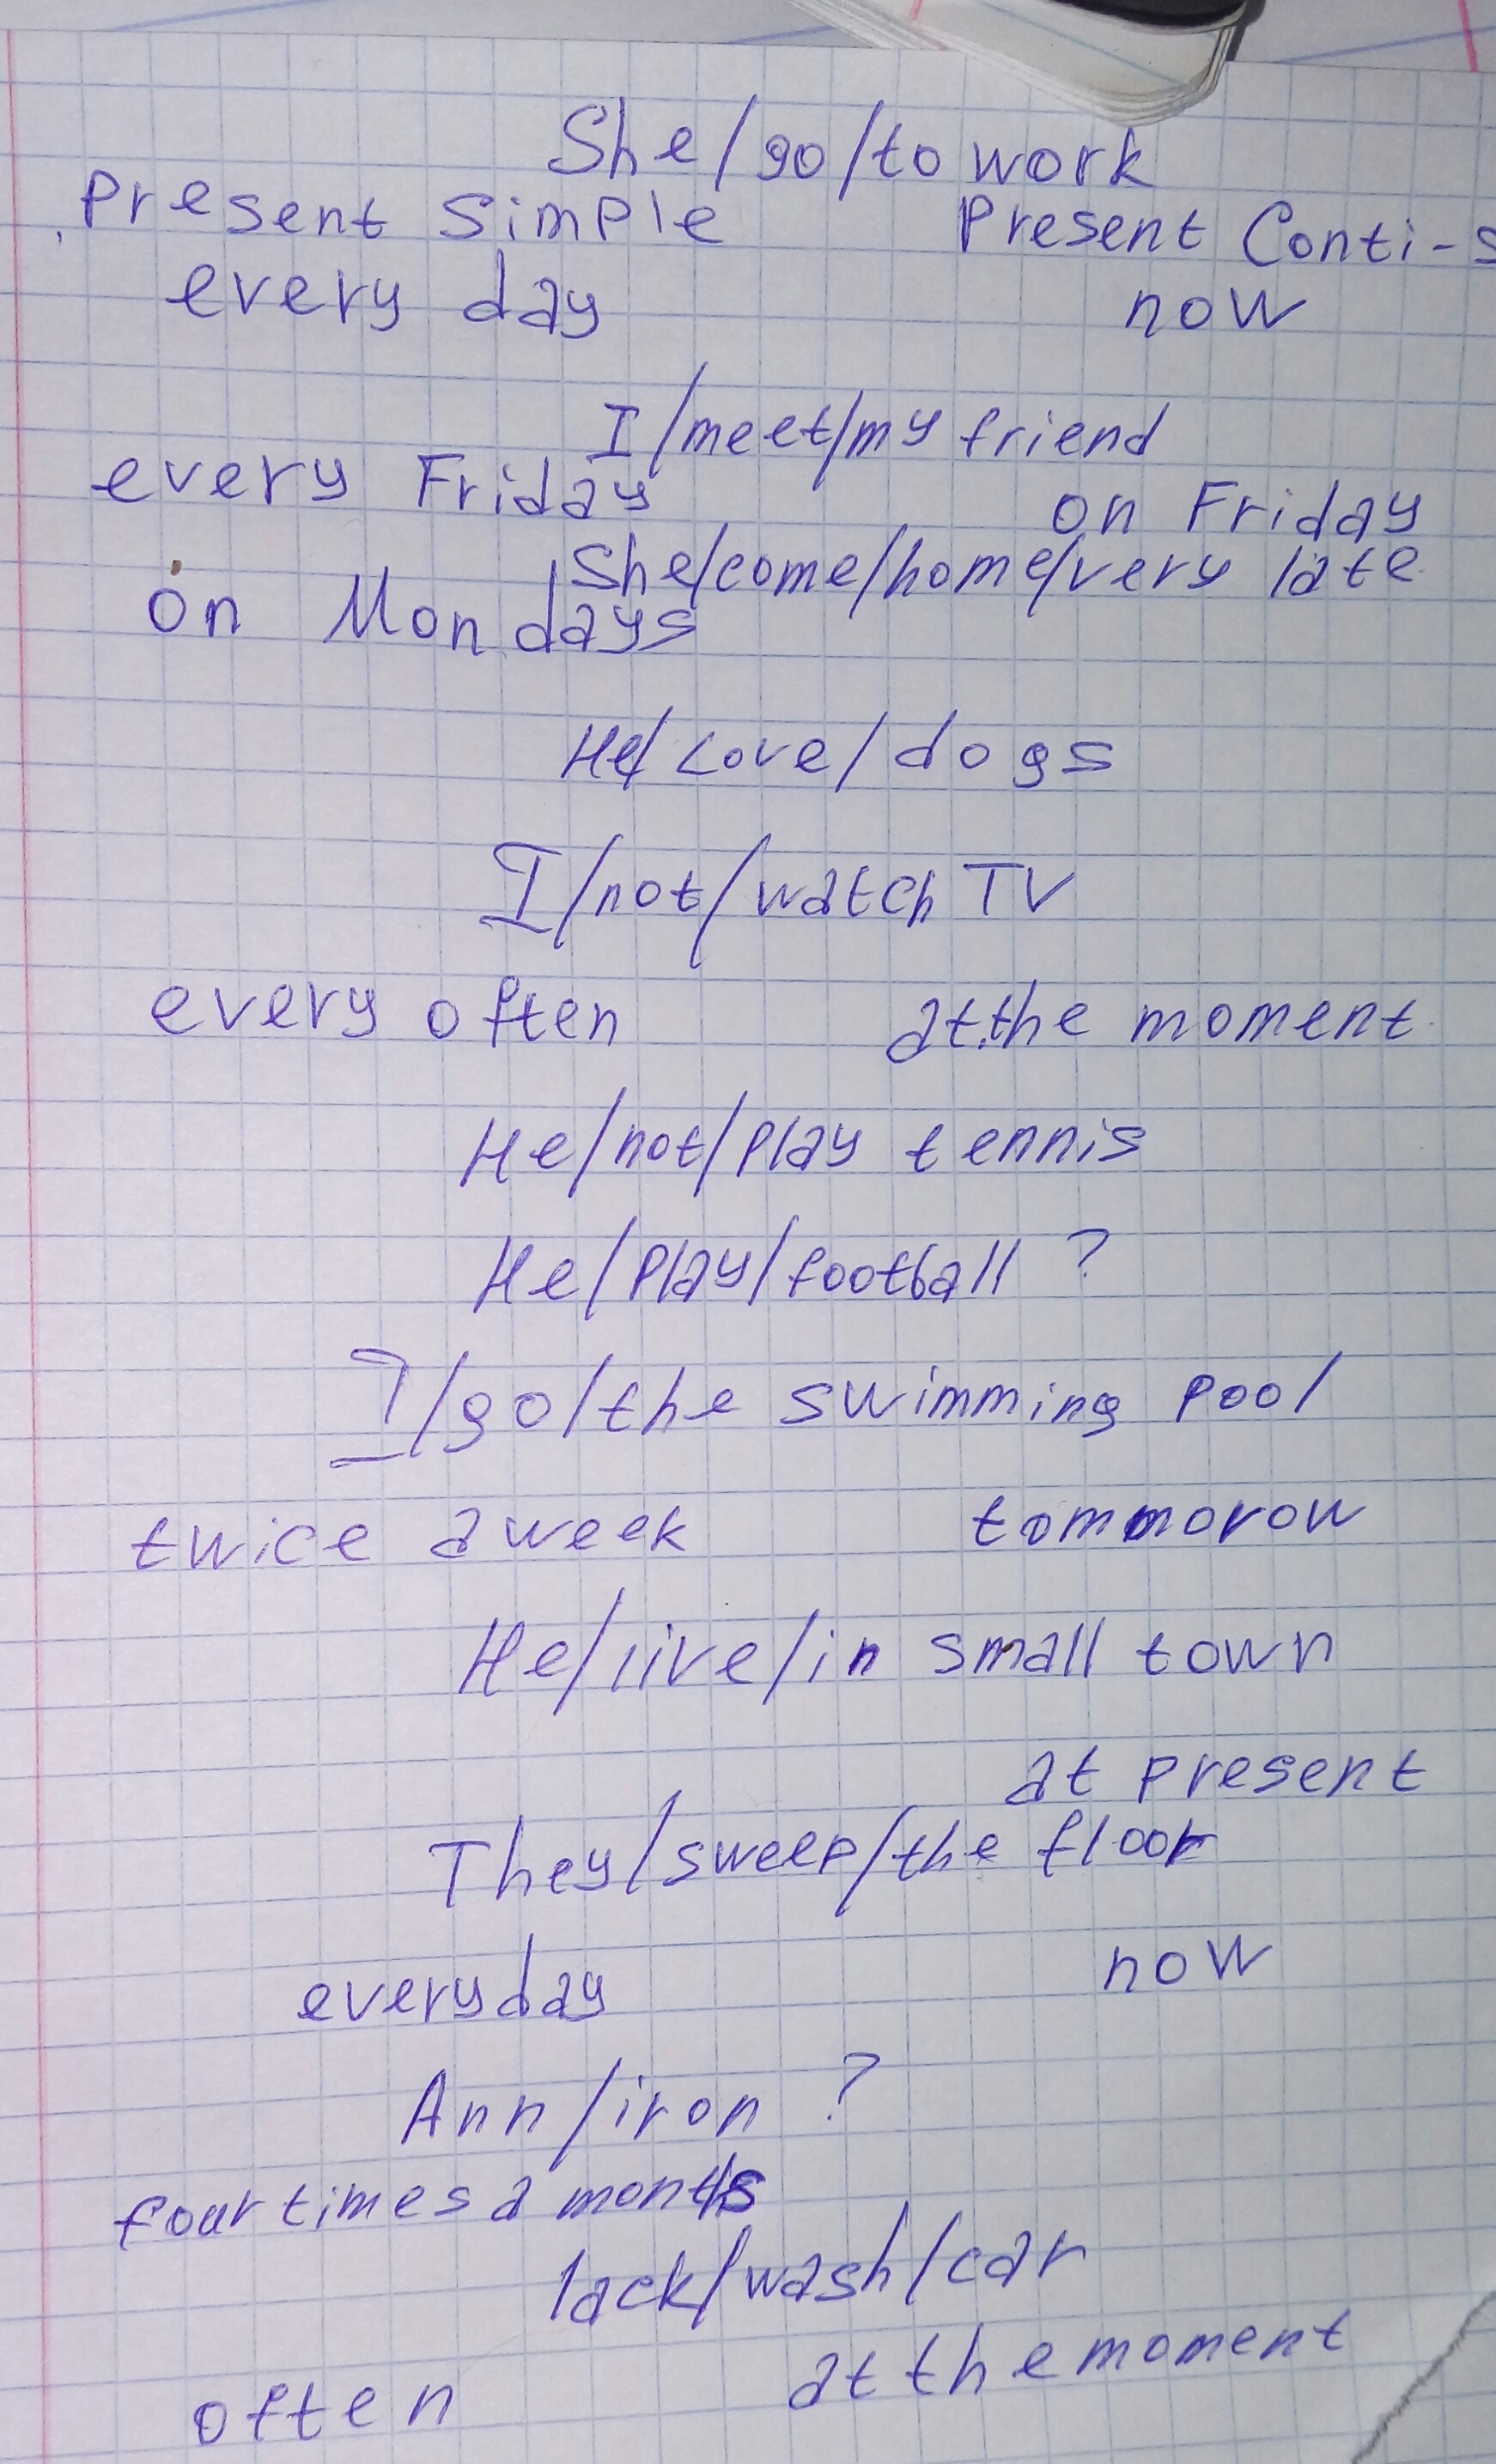 She/go/to work
Present Simple Present Conti-s
every day now
I/meet/my friend
every Friday on Friday
She/come/home/very late
on Mondays
He/Love/dogs
I/not/watch TV
every often at the moment
He/not/play tennis
He/play/football ?
I/go/the swimming pool
twice a week tommorow
He/live/in small town
at present
They/sweep/the floor
every day now
Ann/iron ?
four times a months
lack/wash/car
often at the moment